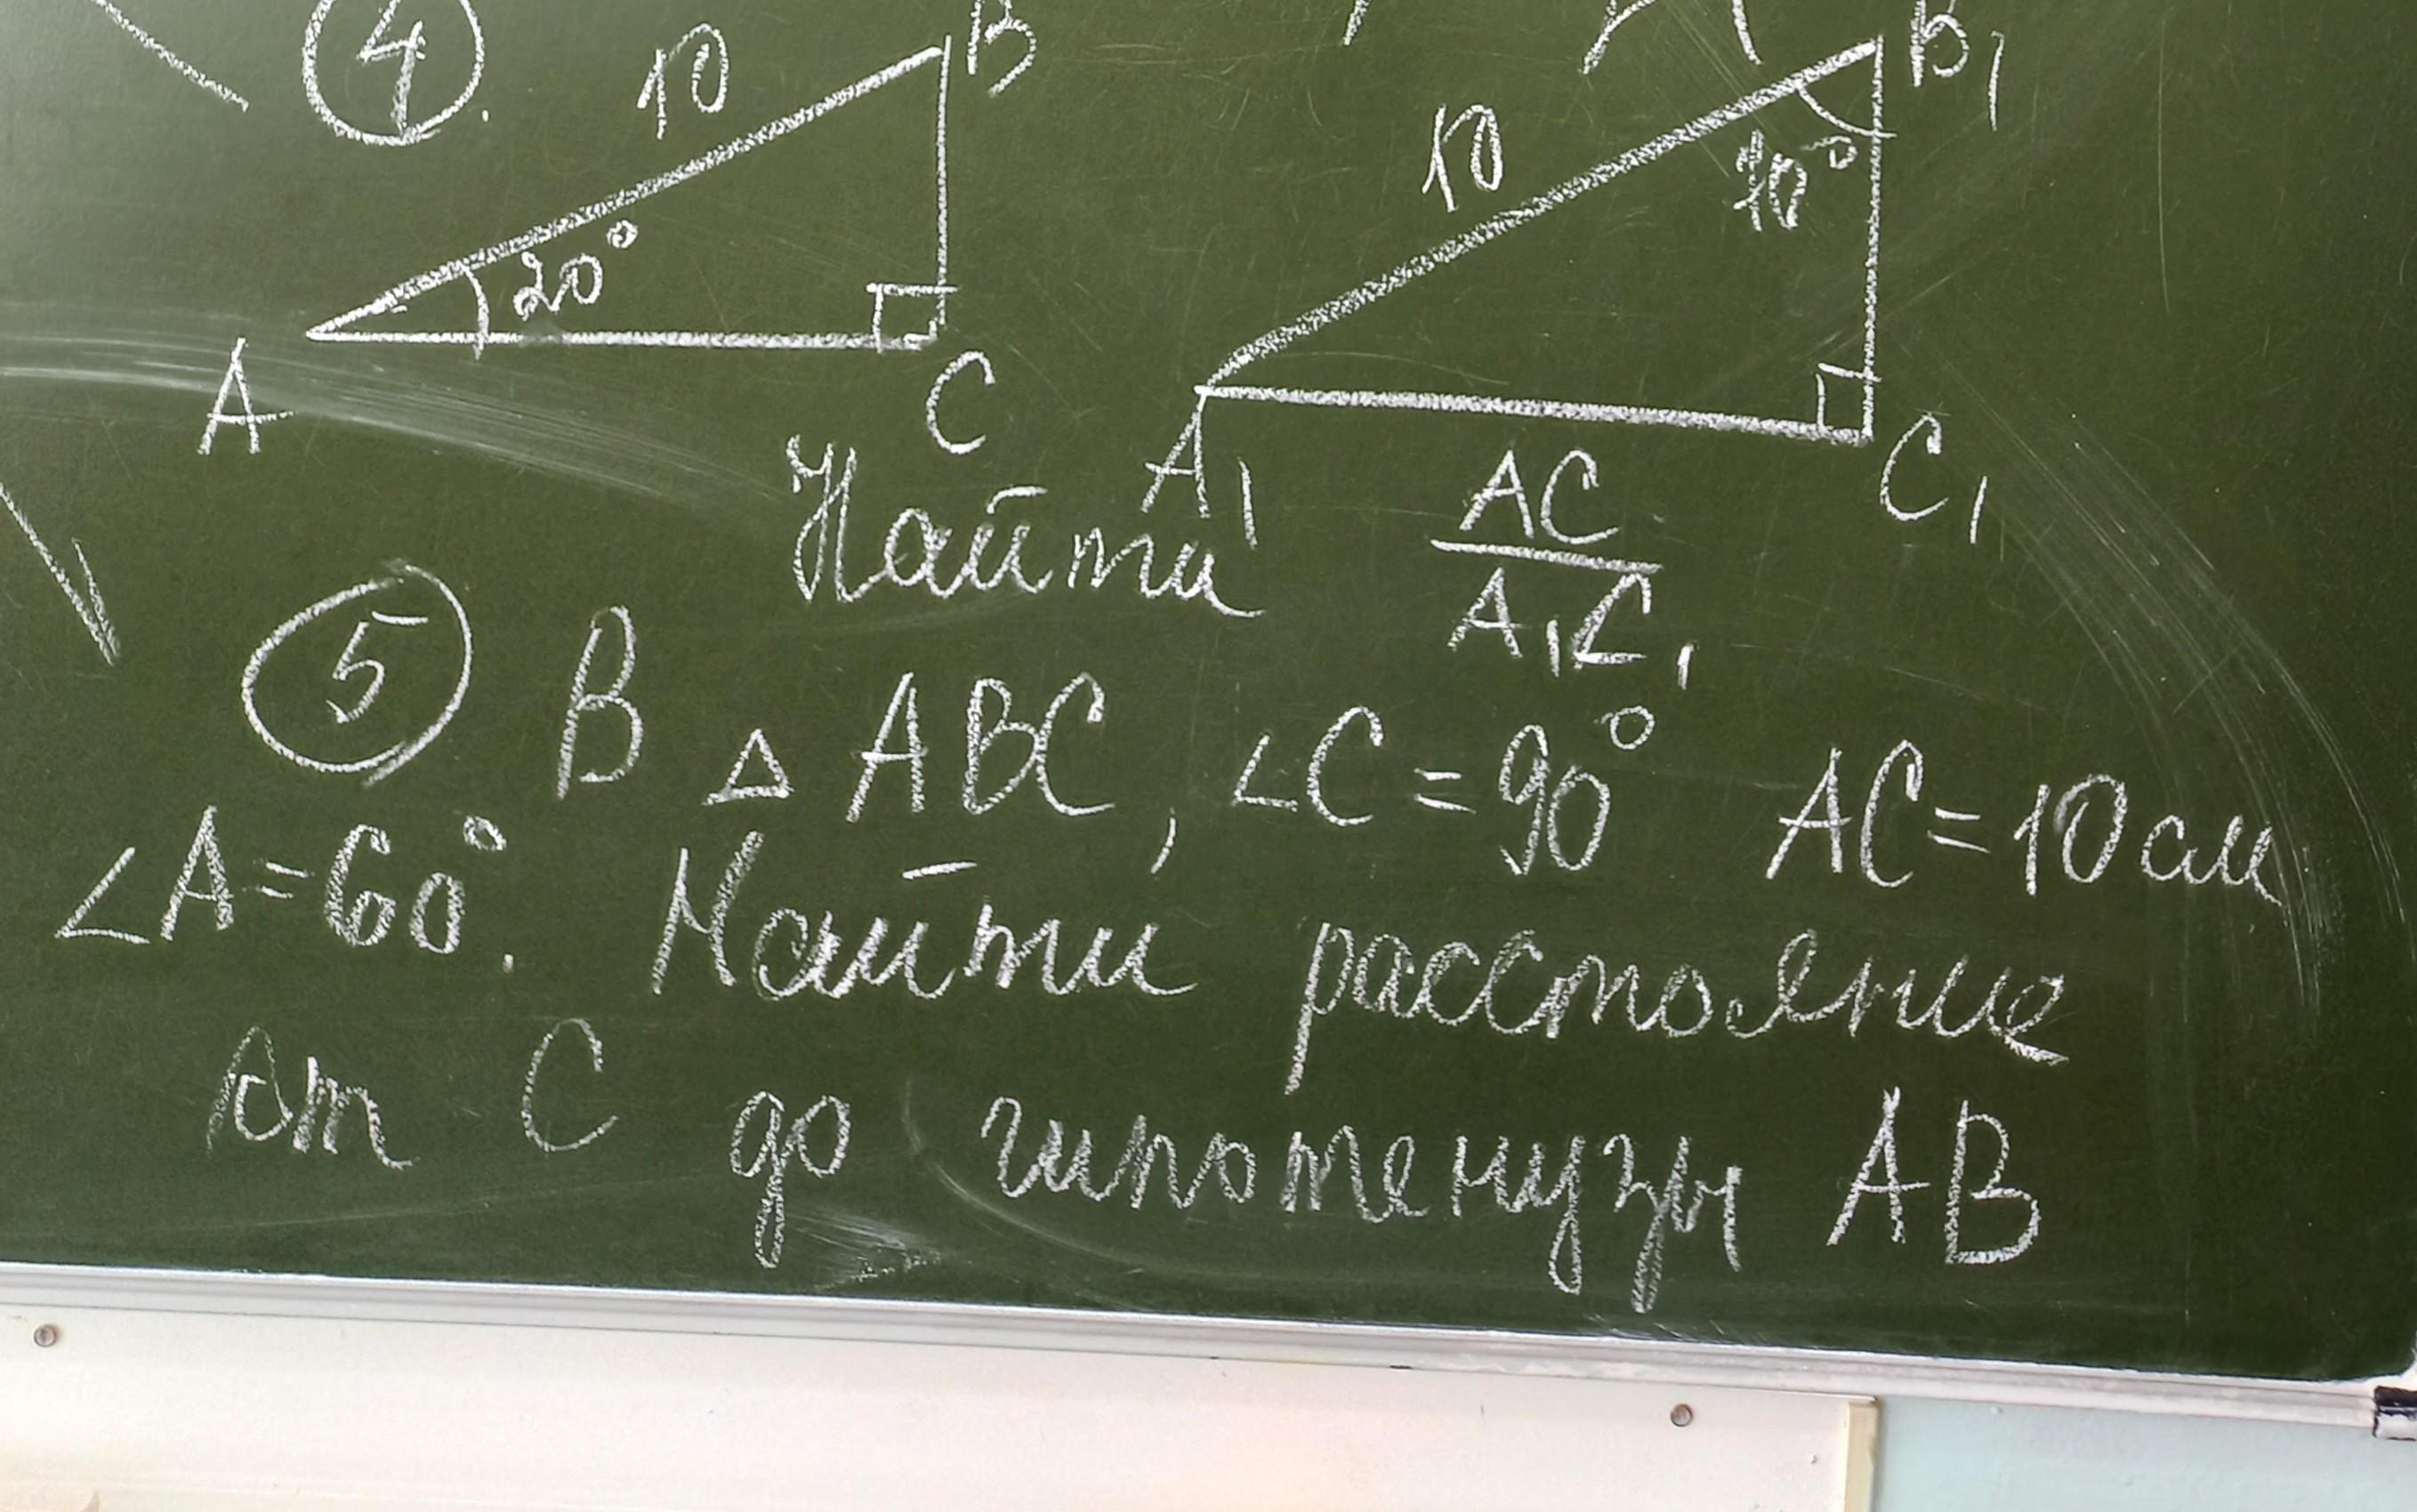 4.
10
B
20°
A
C
10
B₁
70°
A₁
C₁
Найти AC/A₁C₁
5 В △ ABC, ∠C = 90° AC = 10 см
∠A = 60°. Найти расстояние
от C до гипотенузы AB